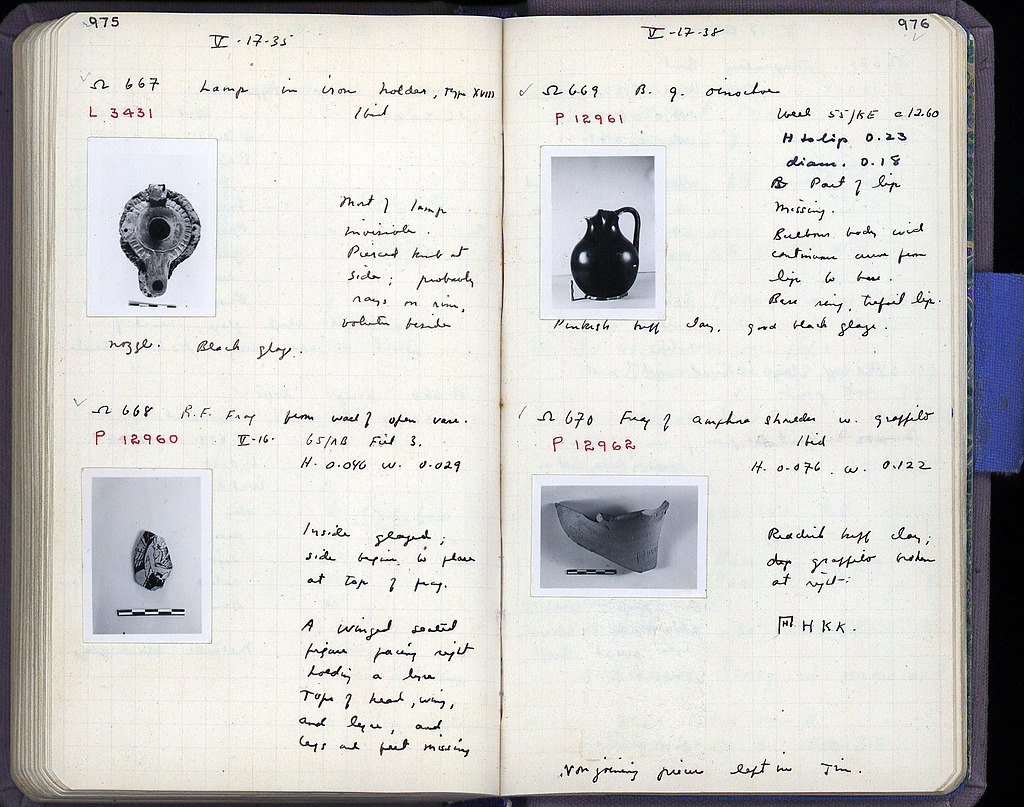 975
V-17-35
Ω 667 Lamp in iron holder, Type XVIII
L 3431 Ibid
Most of lamp
invisible.
Pierced knob at
side; probably
rays on rim,
volutes beside
nozzle. Black glaze.
Ω 668 R.F. Frag from wall of open vase.
P 12960 V-16. 65/ΛB Fill 3.
H. 0.046 W. 0.029
Inside glazed;
side begins to flare
at top of frag.
A winged seated
figure facing right
holding a lyre
Tops of head, wing,
and lyre, and
legs and feet missing
976
V-17-38
Ω 669 B. g. oinochoe
P 12961 Well 55/KE c 12.60
H to lip 0.23
diam. 0.18
Part of lip
missing.
Bulbous body with
continuous curve from
lip to base.
Base ring, trefoil lip.
Pinkish buff clay, good black glaze.
Ω 670 Frag of amphora shoulder w. graffito
P 12962 Ibid
H. 0.076 W. 0.122
Reddish buff clay;
deep graffito broken
at right:
HKK.
Non joining pieces left in Tin.